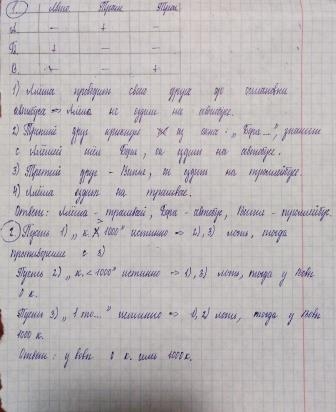 1.
А — + —
Б + — —
В — — +
1) Алёша проводит свого друга до остановки
автобуса => Алёша не ездит на автобусе.
2) Третий друг крикнул из окна: „Боря...", значит
с Алёшей шёл Боря, он ездит на автобусе.
3) Третий друг - Витя, он ездит на троллейбусе.
4) Алёша ездит на трамвае.
Ответ: Алёша - трамвай, Боря - автобус, Витя - троллейбус.
2 Пусть 1) „к. > 1000" истинно => 2), 3) ложь, тогда
противоречие с 3)
Пусть 2) „к. < 1000" истинно => 1), 3) ложь, тогда у Вовы
0 к.
Пусть 3) „1 то..." истинно => 1), 2) ложь, тогда у Вовы
1000 к.
Ответ: у Вовы 0 к. или 1000 к.